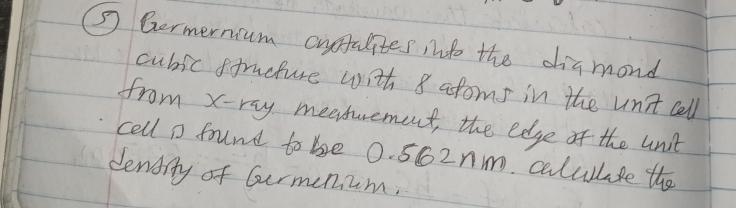 5) Germernium crystalizes into the diamond
cubic structure with 8 atoms in the unit cell
from x-ray measurement, the edge of the unit
cell is found to be 0.562nm. calculate the
density of Germenium.